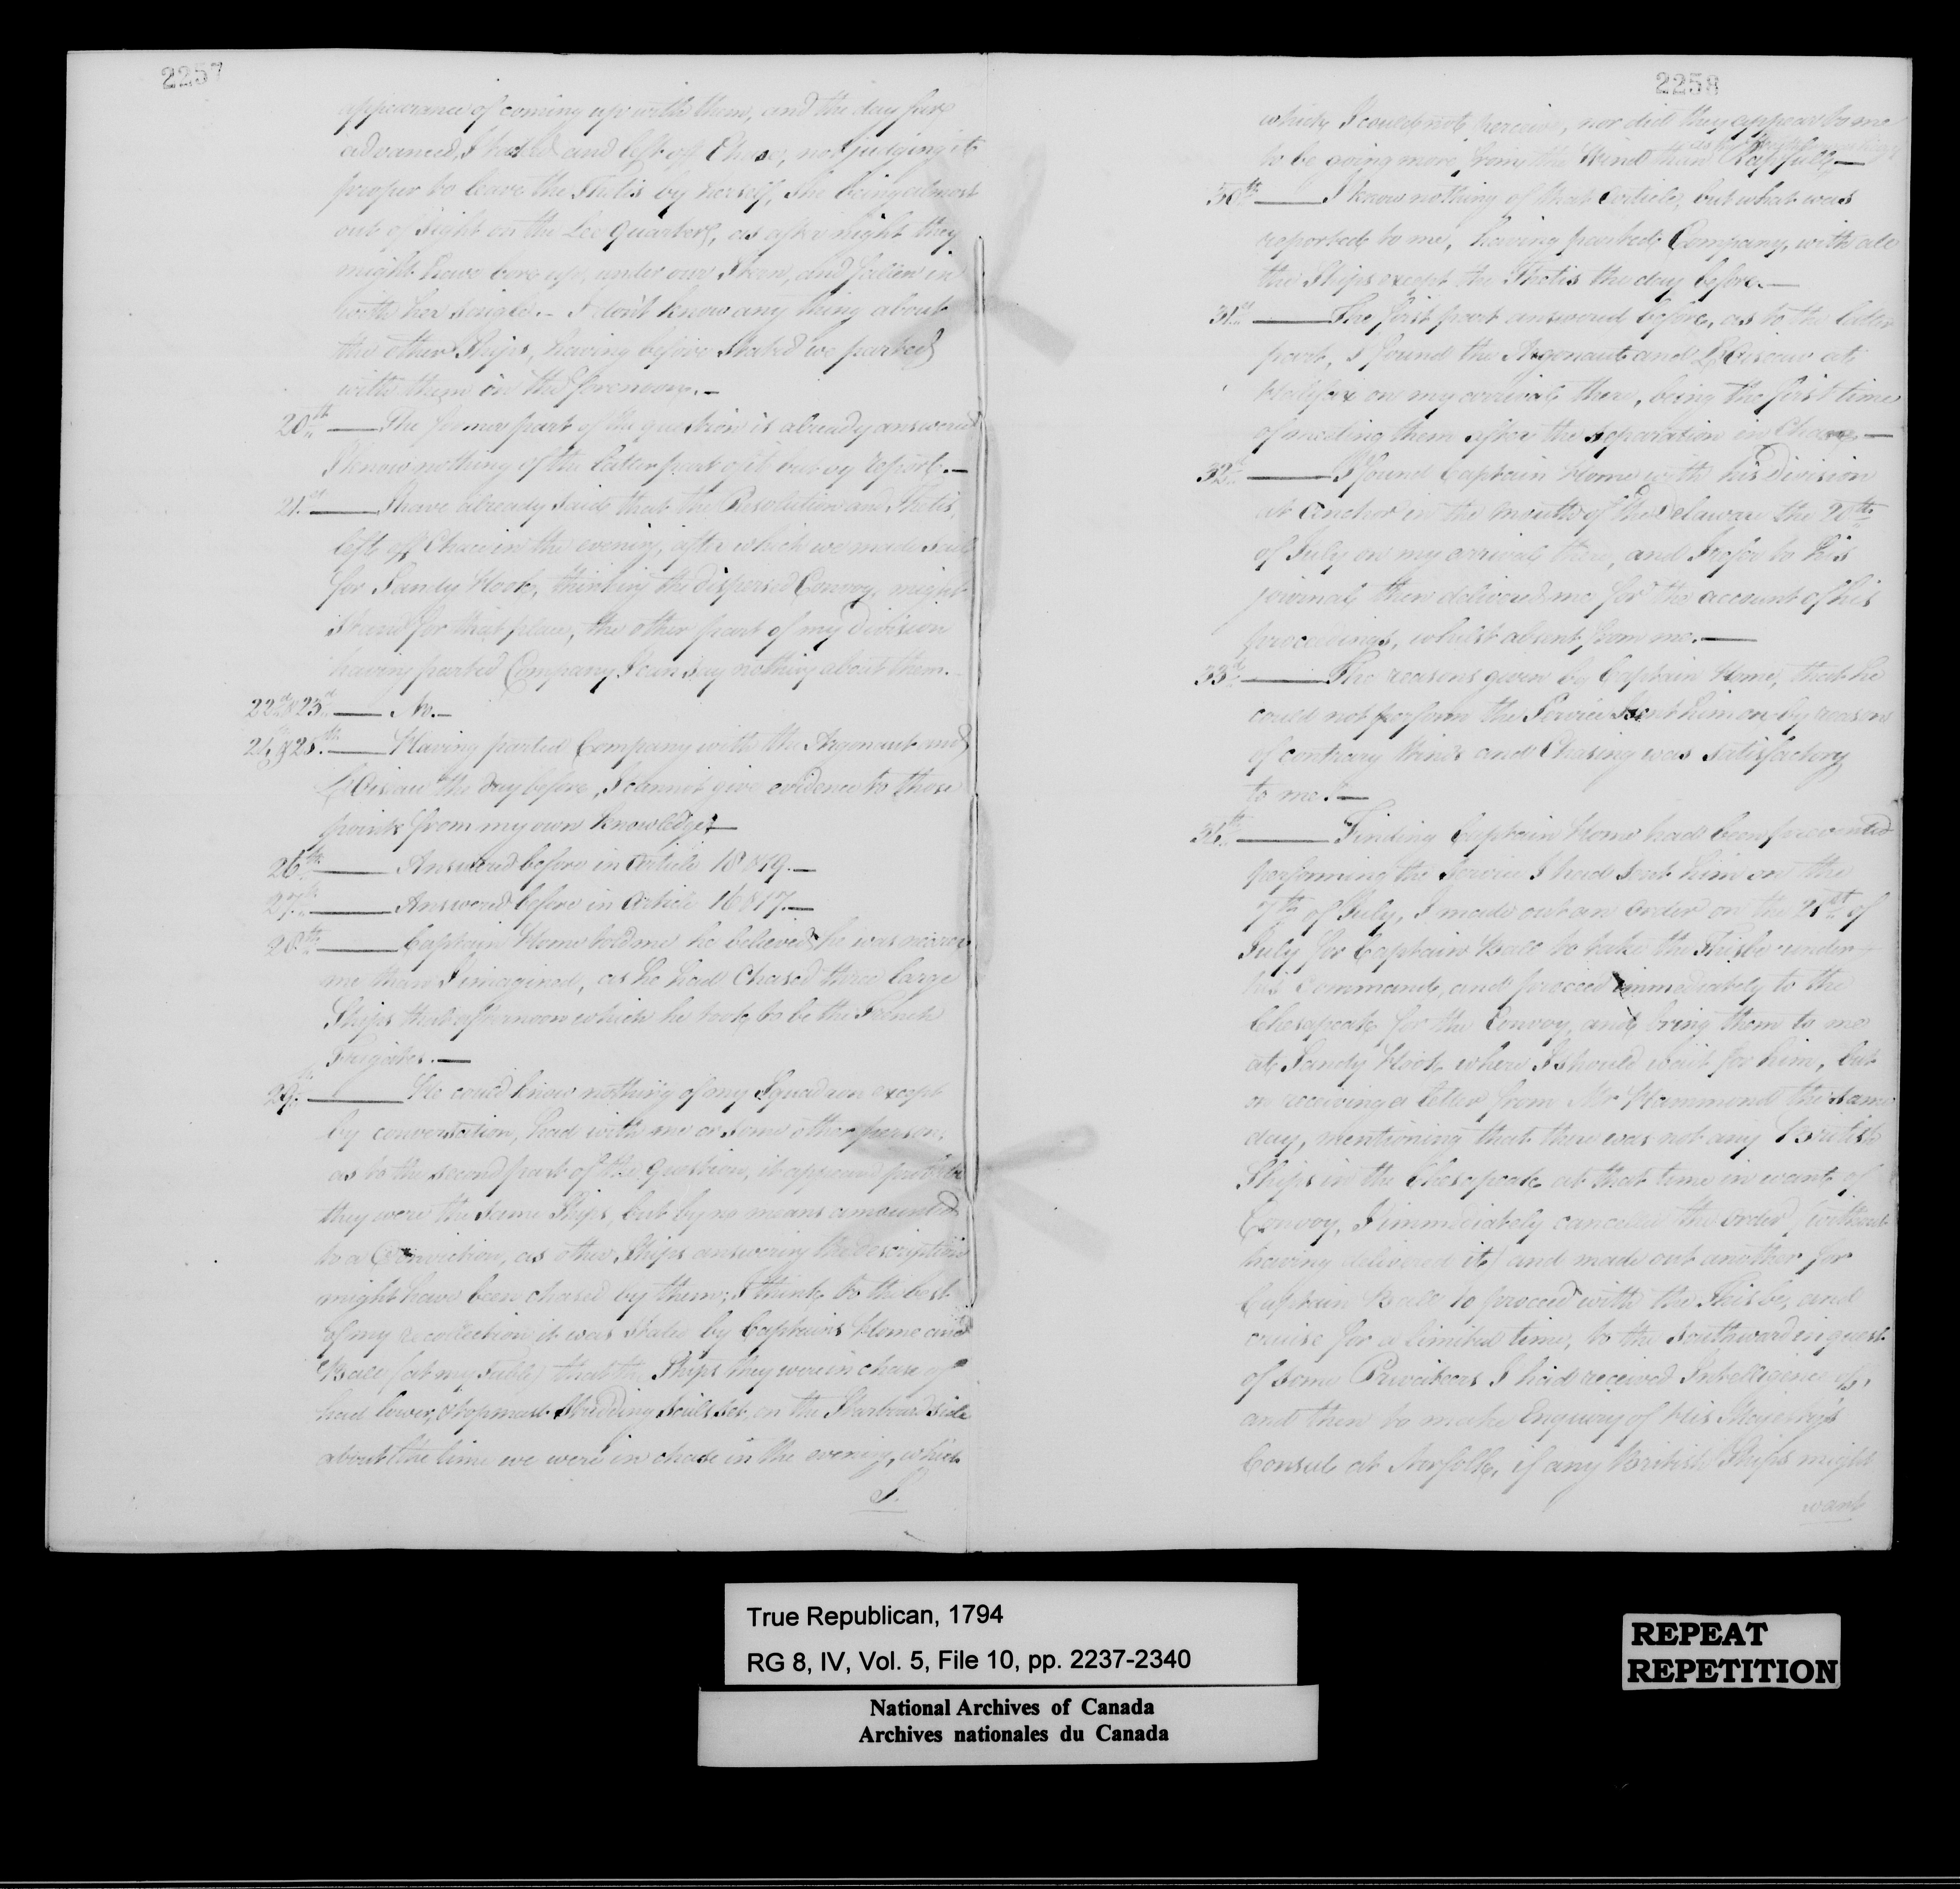 2257
appearance of coming up with them, and the day far
advanced, I hauled and left off Chase, not judging it
proper to leave the Thetis by herself, She being almost
out of Sight on the Lee Quarter, as after night they
might have bore up, under our Stern, and fallen in
with her singled. - I don't know any thing about
the other Ships, having before Stated we parted
with them in the forenoon. -
20th — The former part of the question is already answered
I know nothing of the latter part of it but by report. —
21st — I have already Said that the Resolution and Thetis
left off Chace in the evening, after which we made Sail
for Sandy Hook, thinking the dispersed Convoy, might
Stand for that place, the other part of my division
having parted Company I can say nothing about them.
22d & 23d — No. -
24 & 25th — Having parted Company with the Argonaut and
L'Oiseau the day before, I cannot give evidence to those
points from my own knowledge —
26th — Answered before in Article 18 & 19. —
27th — Answered before in Article 16 & 17. —
28th — Captain Home told me he believed he was nearer
me than I imagined, as he had Chased three large
Ships that afternoon which he took to be the French
Frigates. —
29th — He could know nothing of my Squadron except
by conversation, had with me or some other person,
as to the second part of the Question, it appeared probable
they were the same Ships, but by no means amounted
to a Conviction, as other Ships answering the description
might have been chased by them; I think to the best
of my recollection it was Stated by Captains Home and
Ball (at my Table) that the Ships they were in chase of
had lower, & topmast Studding Sails Set, on the Starboard Side
about the time we were in chase in the evening, which
I.
2258
which I could not perceive, nor did they appear to me
to be going more from the Wind than Rapfull —
30th — I know nothing of that Article, but what was
reported to me, having parted Company, with all
the Ships except the Thetis the day before. —
31st — The first part answered before, as to the latter
part, I found the Argonaut and L'Oiseau at
Halifax on my arrival there, being the first time
of meeting them after the Separation in Chace, —
32d — I found Captain Home with his Division
at Anchor in the mouth of the Delaware the 20th
of July on my arrival there, and I refer to his
journal then delivered me for the account of his
proceedings, whilst absent from me. —
33d — The reasons given by Captain Home, that he
could not perform the Service Sent him on by reason
of contrary Winds and Chasing was Satisfactory
to me. —
— Finding Captain Home had been prevented
performing the Service I had Sent him on the
7th of July, I made out an order on the 21st of
July for Captain Ball to take the Thisbe under
his Command, and proceed immediately to the
Chesapeak for the Convoy, and bring them to me
at Sandy Hook where I should wait for him, but
on receiving a letter from Mr Hammond the same
day, mentioning that there was not any British
Ships in the Chesapeak at that time in want of
Convoy, I immediately cancelled the order, (without
having delivered it) and made out another for
Captain Ball to proceed with the Thisbe, and
cruise for a limited time, to the Southward in quest
of some Privateers I had received Intelligence off,
and then to make Enquiry of His Majesty's
Consul at Norfolk, if any British Ships might
want
True Republican, 1794
RG 8, IV, Vol. 5, File 10, pp. 2237-2340
National Archives of Canada
Archives nationales du Canada
REPEAT
REPETITION